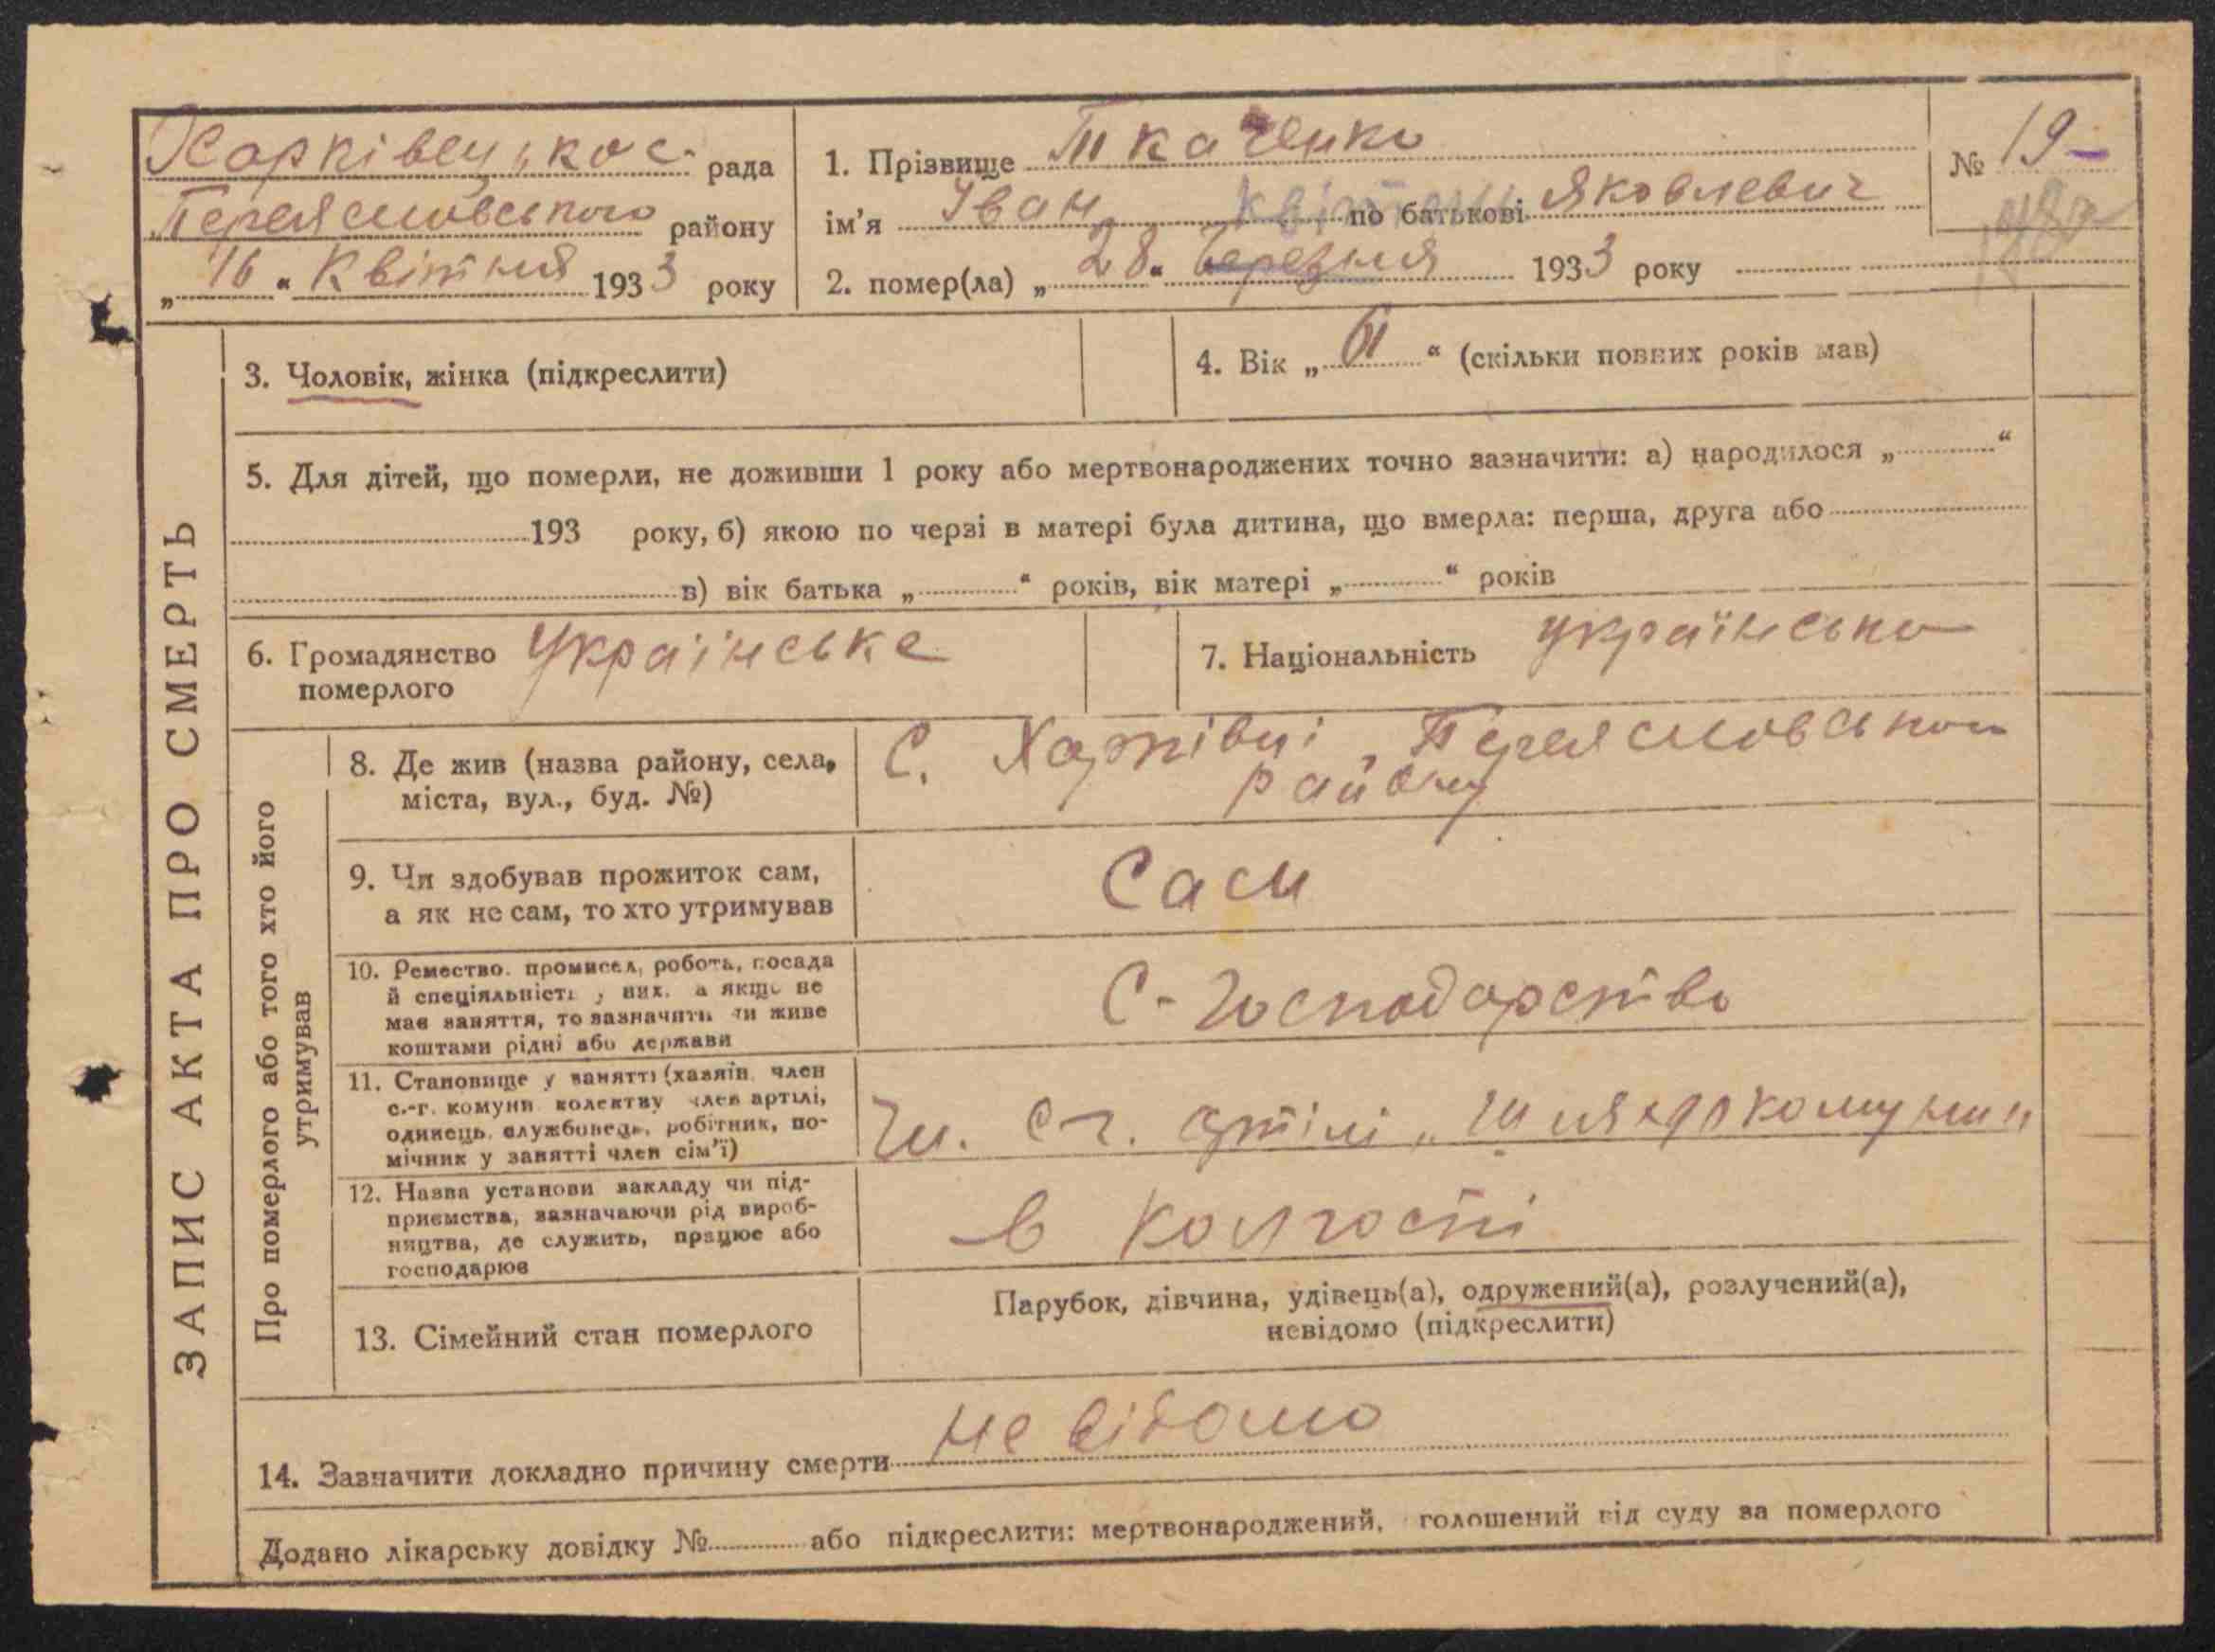 Харківецької с. рада
Переяславського району
„ 16 “ Квітня 1933 року
1. Прізвище Ткаченко
ім'я Іван по батькові Яковлевич
2. помер(ла) „ 28 “ березня 1933 року
№ 19
ЗАПИС АКТА ПРО СМЕРТЬ
3. Чоловік, жінка (підкреслити)
4. Вік „ 61 “ (скільки повних років мав)
5. Для дітей, що померли, не доживши 1 року або мертвонароджених точно зазначити: а) народилося „ “
193 року, б) якою по черзі в матері була дитина, що вмерла: перша, друга або
в) вік батька „ “ років, вік матері „ “ років
6. Громадянство Українське
померлого
7. Національність українсько
Про померлого або того хто його
утримував
8. Де жив (назва району, села,
міста, вул., буд. №)
С. Харківці Переяславського
району
9. Чи здобував прожиток сам,
а як не сам, то хто утримував
Сам
10. Ремество, промисел, робота, посада
й спеціяльність у них, а якщо не
має заняття, то зазначити чи живе
коштами рідні або держави
С-господарство
11. Становище у занятті (хазяїн, член
с.-г. комуни колективу член артілі,
одинець, службовець, робітник, по-
мічник у занятті член сім'ї)
Чл. с г. артілі „Шлях до комуни"
12. Назва установи закладу чи під-
приємства, зазначаючи рід вироб-
ництва, де служить, працює або
господарює
в колгоспі
13. Сімейний стан померлого
Парубок, дівчина, удівець(а), одружений(а), розлучений(а),
невідомо (підкреслити)
14. Зазначити докладно причину смерти не відомо
Додано лікарську довідку № або підкреслити: мертвонароджений, голошений від суду за померлого